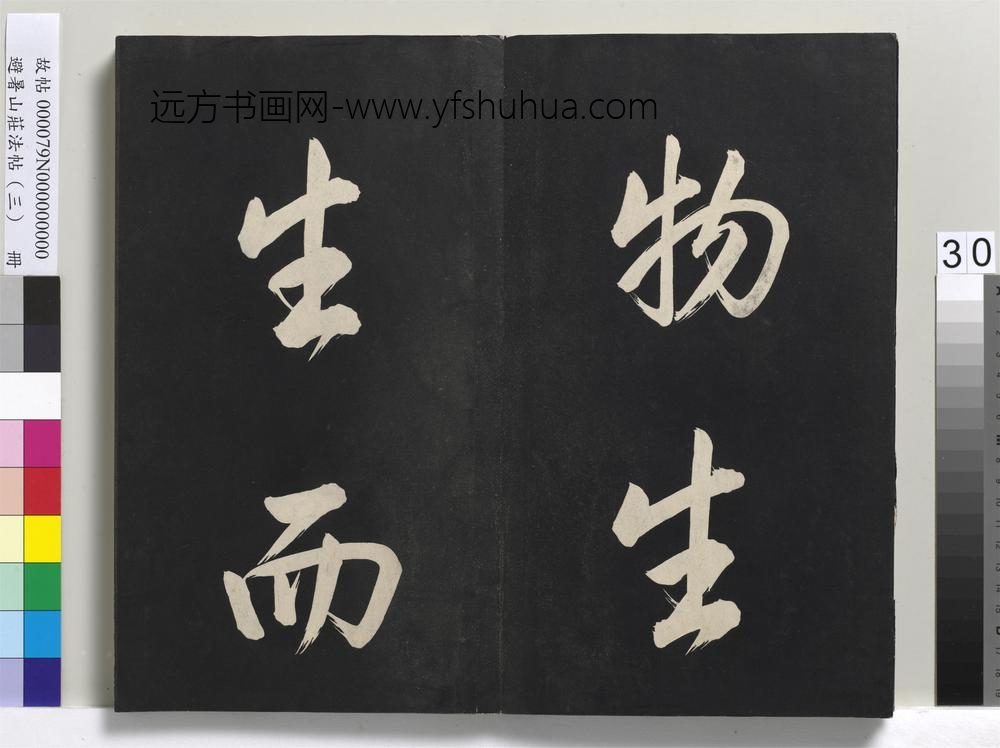 远方书画网-www.yfshuhua.com
物生
生而
故帖 000079N000000000
避暑山莊法帖（三） 冊
30